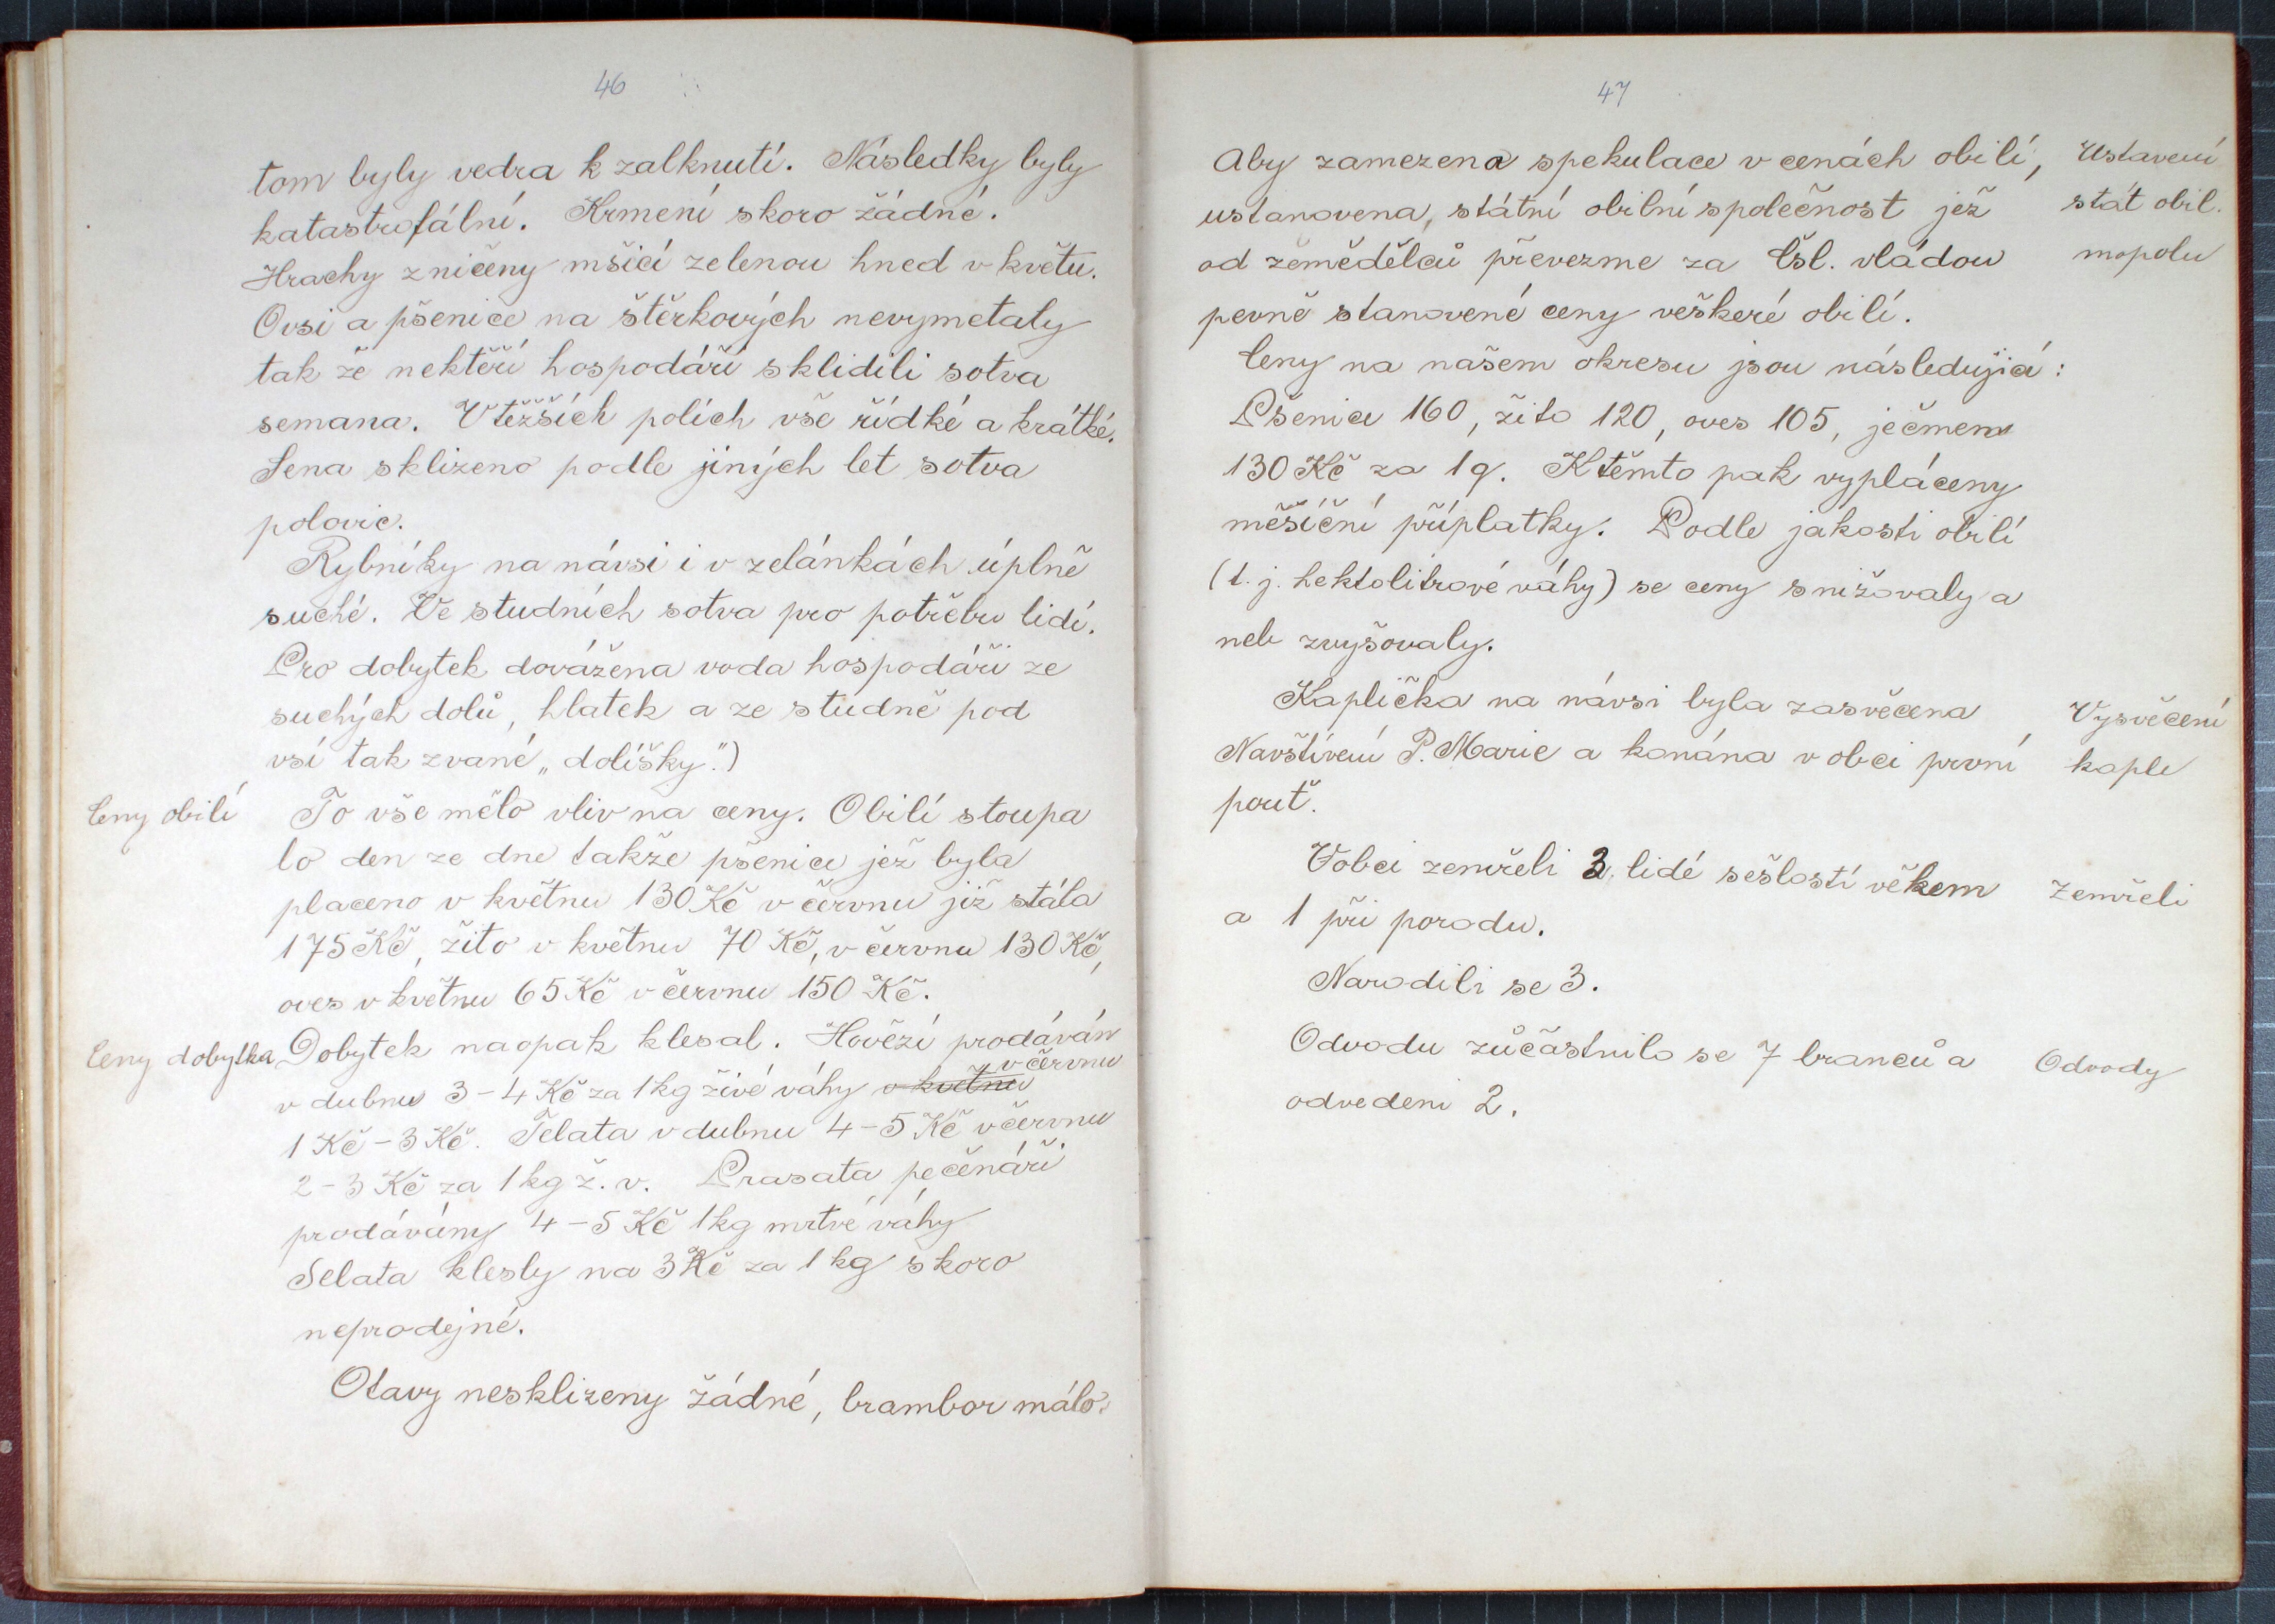 46
tom byly vedra k zalknutí. Následky byly
katastrofální. Krmení skoro žádné.
Hrachy zničeny mšicí zelenou hned v květu.
Ovsi a pšenice na štěrkových nevymetaly
tak že nektěří hospodáři sklidili sotva
semana. V těžších polích vše řídké a krátké.
Sena sklizeno podle jiných let sotva
polovic.
Rybníky na návsi i v zelánkách úplně
suché. Ve studních sotva pro potřebu lidí.
Pro dobytek dovážena voda hospodáři ze
suchých dolů, hlatek a ze studně pod
vsí tak zvané „dolíšky.")
Ceny obilí
To vše mělo vliv na ceny. Obilí stoupa
lo den ze dne takže pšenice jež byla
placeno v květnu 130 Kč v červnu již stála
175 Kč, žito v květnu 70 Kč, v červnu 130 Kč,
oves v květnu 65 Kč v červnu 150 Kč.
Ceny dobytka
Dobytek naopak klesal. Hovězí prodáván
v dubnu 3-4 Kč za 1 kg živé váhy v květnu v červnu
1 Kč - 3 Kč. Telata v dubnu 4-5 Kč v červnu
2-3 Kč za 1 kg ž. v. Prasata pečenáři
prodávány 4-5 Kč 1 kg mrtvé váhy
Selata klesly na 3 Kč za 1 kg skoro
neprodejné.
Otavy nesklizeny žádné, brambor málo.
47
Aby zamezena spekulace v cenách obilí,
ustanovena, státní obilní společnost jež
od zemědělců převezme za Čsl. vládou
pevně stanovené ceny veškeré obilí.
Ustavení
stát obil.
mopolu
Ceny na našem okresu jsou následující:
Pšenice 160, žito 120, oves 105, ječmen
130 Kč za 1 q. K těmto pak vypláceny
měšíční příplatky. Podle jakosti obilí
(t. j. hektolitrové váhy) se ceny snižovaly a
neb zvyšovaly.
Kaplička na návsi byla zasvěcena
Navštívení P. Marie a konána v obci první
pouť.
Vysvěcení
kaple
V obci zemřeli 3 lidé sešlostí věkem
a 1 při porodu.
Zemřeli
Narodili se 3.
Odvodu zůčástnilo se 7 branců a
odvedeni 2.
Odvody